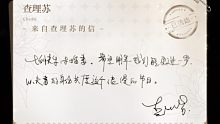 查理苏
Charlie
来自查理苏的信
七夕快乐，未婚妻。希望明年我们能更进一步，
以夫妻的身份共度这个浪漫的节日。
查理苏